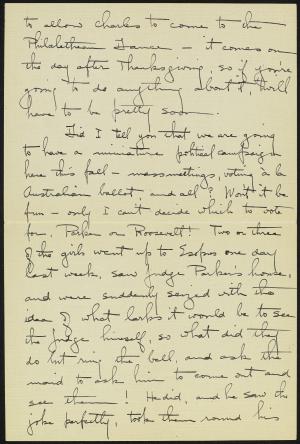 to allow Charles to come to the
Philalethean Dance — it comes on
the day after Thanksgiving, so if you're
going to do anything about it, 'twill
have to be pretty soon.
Did I tell you that we are going
to have a miniature political campaign
here this fall — massmeetings, voting à la
Australian ballot and all? Won't it be
fun — only I can't decide which to vote
for, Parker or Roosevelt! Two or three
of the girls went up to Esopus one day
last week, saw Judge Parker's house,
and were suddenly seized with the
idea of what larks it would be to see
the Judge himself, so what did they
do but ring the bell, and ask the
maid to ask him to come out and
see them! He did, and he saw the
joke perfectly, took them round his